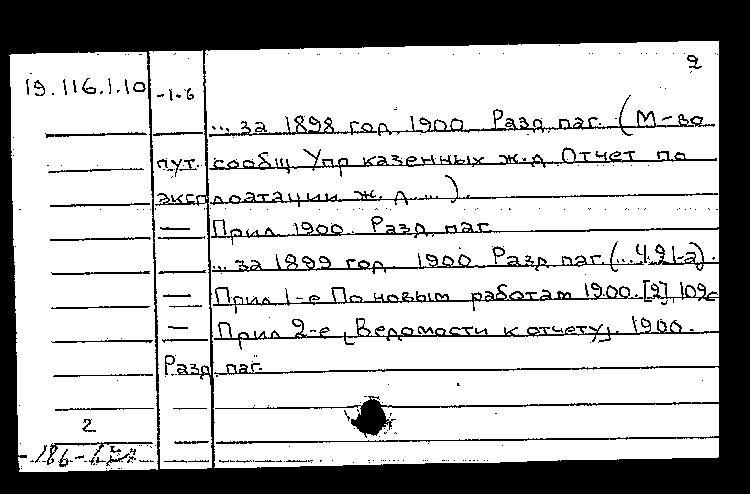 2
19.116.1.10 -1.6
... за 1898 год 1900 Разд. паг. (М-во
пут. сообщ Упр казенных ж.д Отчет по
эксплоатации ж. д. ...).
— Прил 1900. Разд. паг
... за 1899 год 1900 Разд паг. (...Ч.2
— Прил 1-е По новым работам 1900. [2] 109с
— Прил 2-е [Ведомости к отчету]. 1900.
Разд. паг.
2